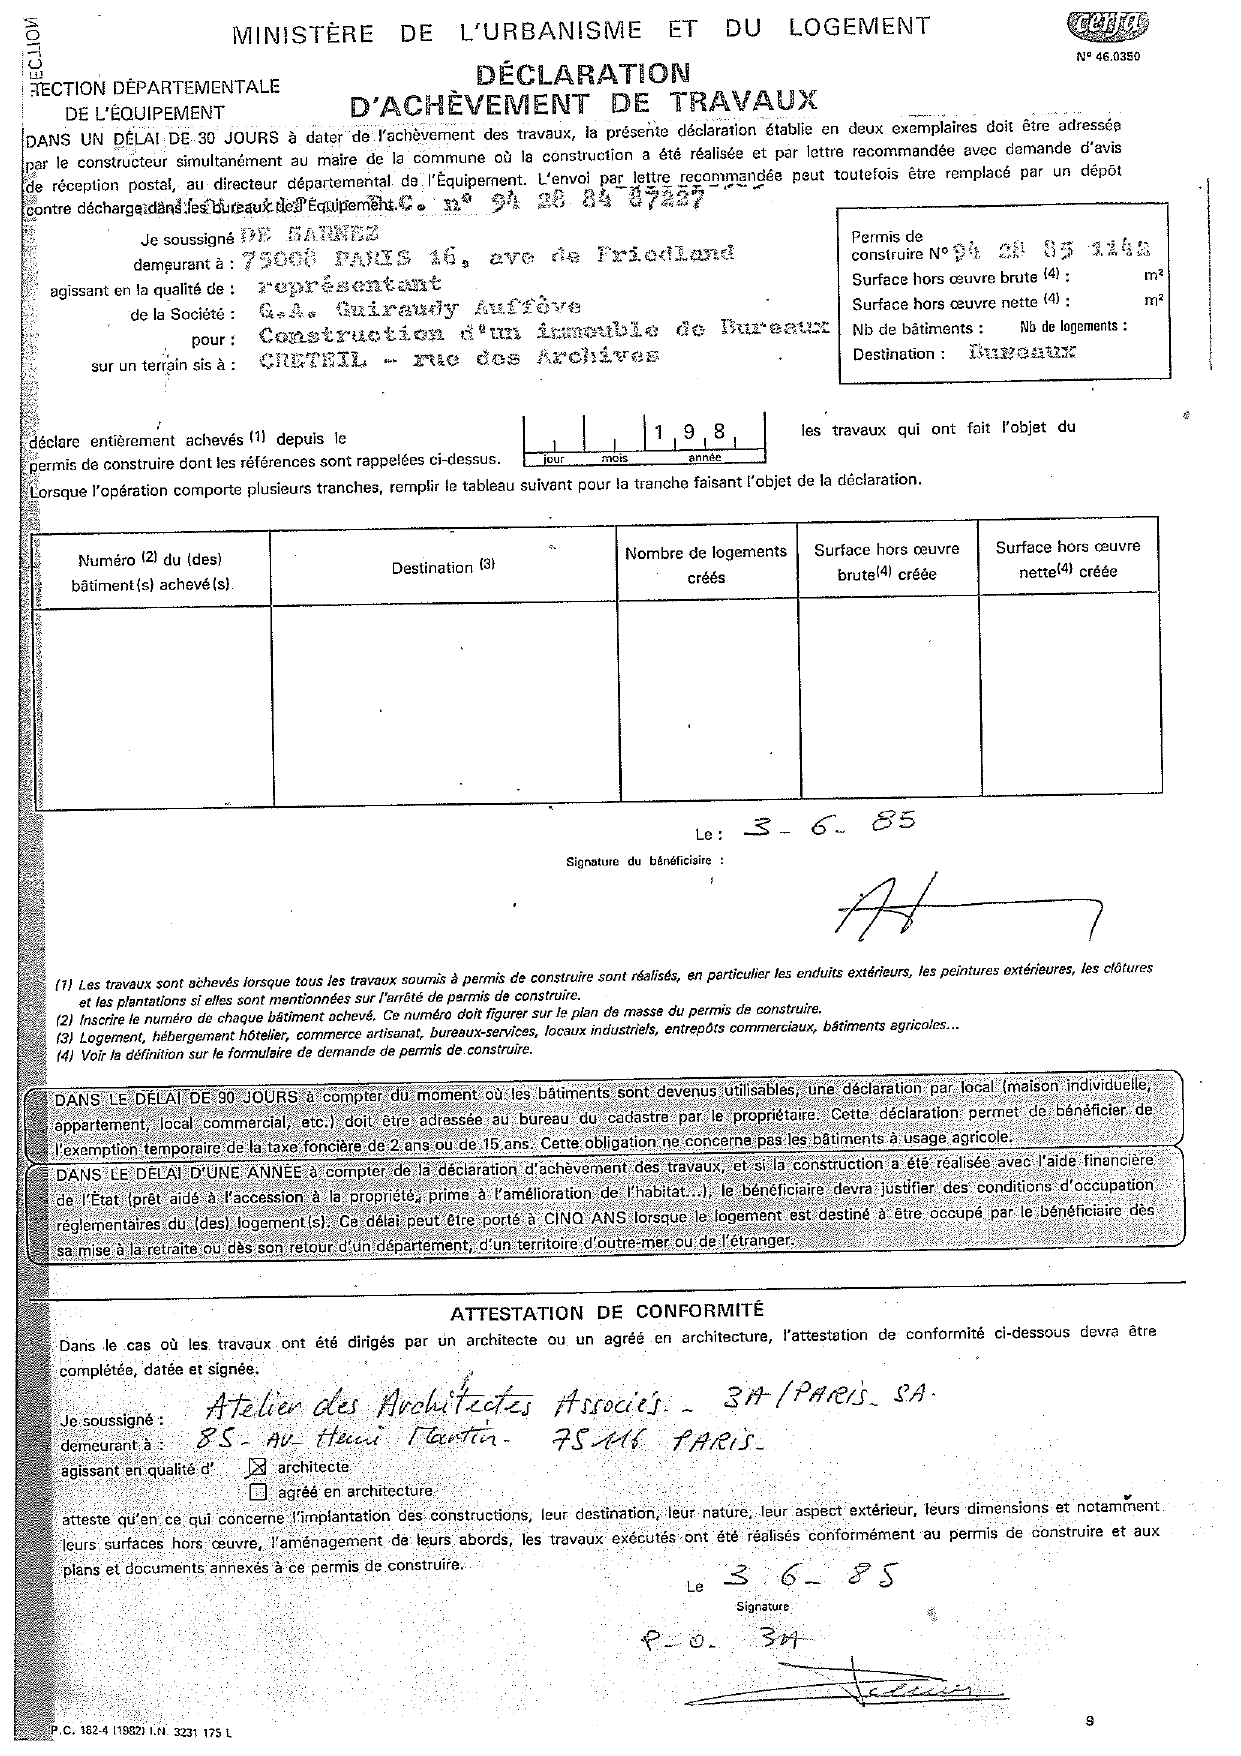 MINISTÈRE DE L'URBANISME ET DU LOGEMENT
cerfa
N° 46.0350
ECTION
RECTION DÉPARTEMENTALE
DE L'ÉQUIPEMENT
DÉCLARATION
D'ACHÈVEMENT DE TRAVAUX
DANS UN DÉLAI DE 30 JOURS à dater de l'achèvement des travaux, la présente déclaration établie en deux exemplaires doit être adressée
par le constructeur simultanément au maire de la commune où la construction a été réalisée et par lettre recommandée avec demande d'avis
de réception postal, au directeur départemental de l'Équipement. L'envoi par lettre recommandée peut toutefois être remplacé par un dépôt
contre décharge dans les bureaux de l'Équipement. C. n° 94 28 84 87227
Je soussigné DE SARNEZ
demeurant à : 75008 PARIS 16, ave de Friedland
agissant en la qualité de : représentant
de la Société : G.A. Guiraudy Auffève
pour : Construction d'un immeuble de Bureaux
sur un terrain sis à : CRETEIL - rue des Archives
Permis de
construire N° 94 28 85 1142
Surface hors œuvre brute (4) : m²
Surface hors œuvre nette (4) : m²
Nb de bâtiments : Nb de logements :
Destination : Bureaux
déclare entièrement achevés (1) depuis le 1 9 8 les travaux qui ont fait l'objet du
jour mois année
permis de construire dont les références sont rappelées ci-dessus.
Lorsque l'opération comporte plusieurs tranches, remplir le tableau suivant pour la tranche faisant l'objet de la déclaration.
Numéro (2) du (des)
bâtiment(s) achevé(s).
Destination (3)
Nombre de logements
créés
Surface hors œuvre
brute(4) créée
Surface hors œuvre
nette(4) créée
Le : 3 - 6 - 85
Signature du bénéficiaire :
(1) Les travaux sont achevés lorsque tous les travaux soumis à permis de construire sont réalisés, en particulier les enduits extérieurs, les peintures extérieures, les clôtures
et les plantations si elles sont mentionnées sur l'arrêté de permis de construire.
(2) Inscrire le numéro de chaque bâtiment achevé. Ce numéro doit figurer sur le plan de masse du permis de construire.
(3) Logement, hébergement hôtelier, commerce artisanat, bureaux-services, locaux industriels, entrepôts commerciaux, bâtiments agricoles...
(4) Voir la définition sur le formulaire de demande de permis de construire.
DANS LE DÉLAI DE 90 JOURS à compter du moment où les bâtiments sont devenus utilisables, une déclaration par local (maison individuelle,
appartement, local commercial, etc.) doit être adressée au bureau du cadastre par le propriétaire. Cette déclaration permet de bénéficier de
l'exemption temporaire de la taxe foncière de 2 ans ou de 15 ans. Cette obligation ne concerne pas les bâtiments à usage agricole.
DANS LE DÉLAI D'UNE ANNÉE à compter de la déclaration d'achèvement des travaux, et si la construction a été réalisée avec l'aide financière
de l'État (prêt aidé à l'accession à la propriété, prime à l'amélioration de l'habitat...), le bénéficiaire devra justifier des conditions d'occupation
réglementaires du (des) logement(s). Ce délai peut être porté à CINQ ANS lorsque le logement est destiné à être occupé par le bénéficiaire dès
sa mise à la retraite ou dès son retour d'un département, d'un territoire d'outre-mer ou de l'étranger.
ATTESTATION DE CONFORMITÉ
Dans le cas où les travaux ont été dirigés par un architecte ou un agréé en architecture, l'attestation de conformité ci-dessous devra être
complétée, datée et signée.
Je soussigné : Atelier des Architectes Associés. - 3A/PARIS. SA.
demeurant à : 85 - AV - Henri Martin - 75116 PARIS -
agissant en qualité d' architecte
agréé en architecture
atteste qu'en ce qui concerne l'implantation des constructions, leur destination, leur nature, leur aspect extérieur, leurs dimensions et notamment
leurs surfaces hors œuvre, l'aménagement de leurs abords, les travaux exécutés ont été réalisés conformément au permis de construire et aux
plans et documents annexés à ce permis de construire.
Le 3 . 6 - 85
Signature
P - O - 3A
P.C. 182-4 (1982) I.N. 3231 175 L
9